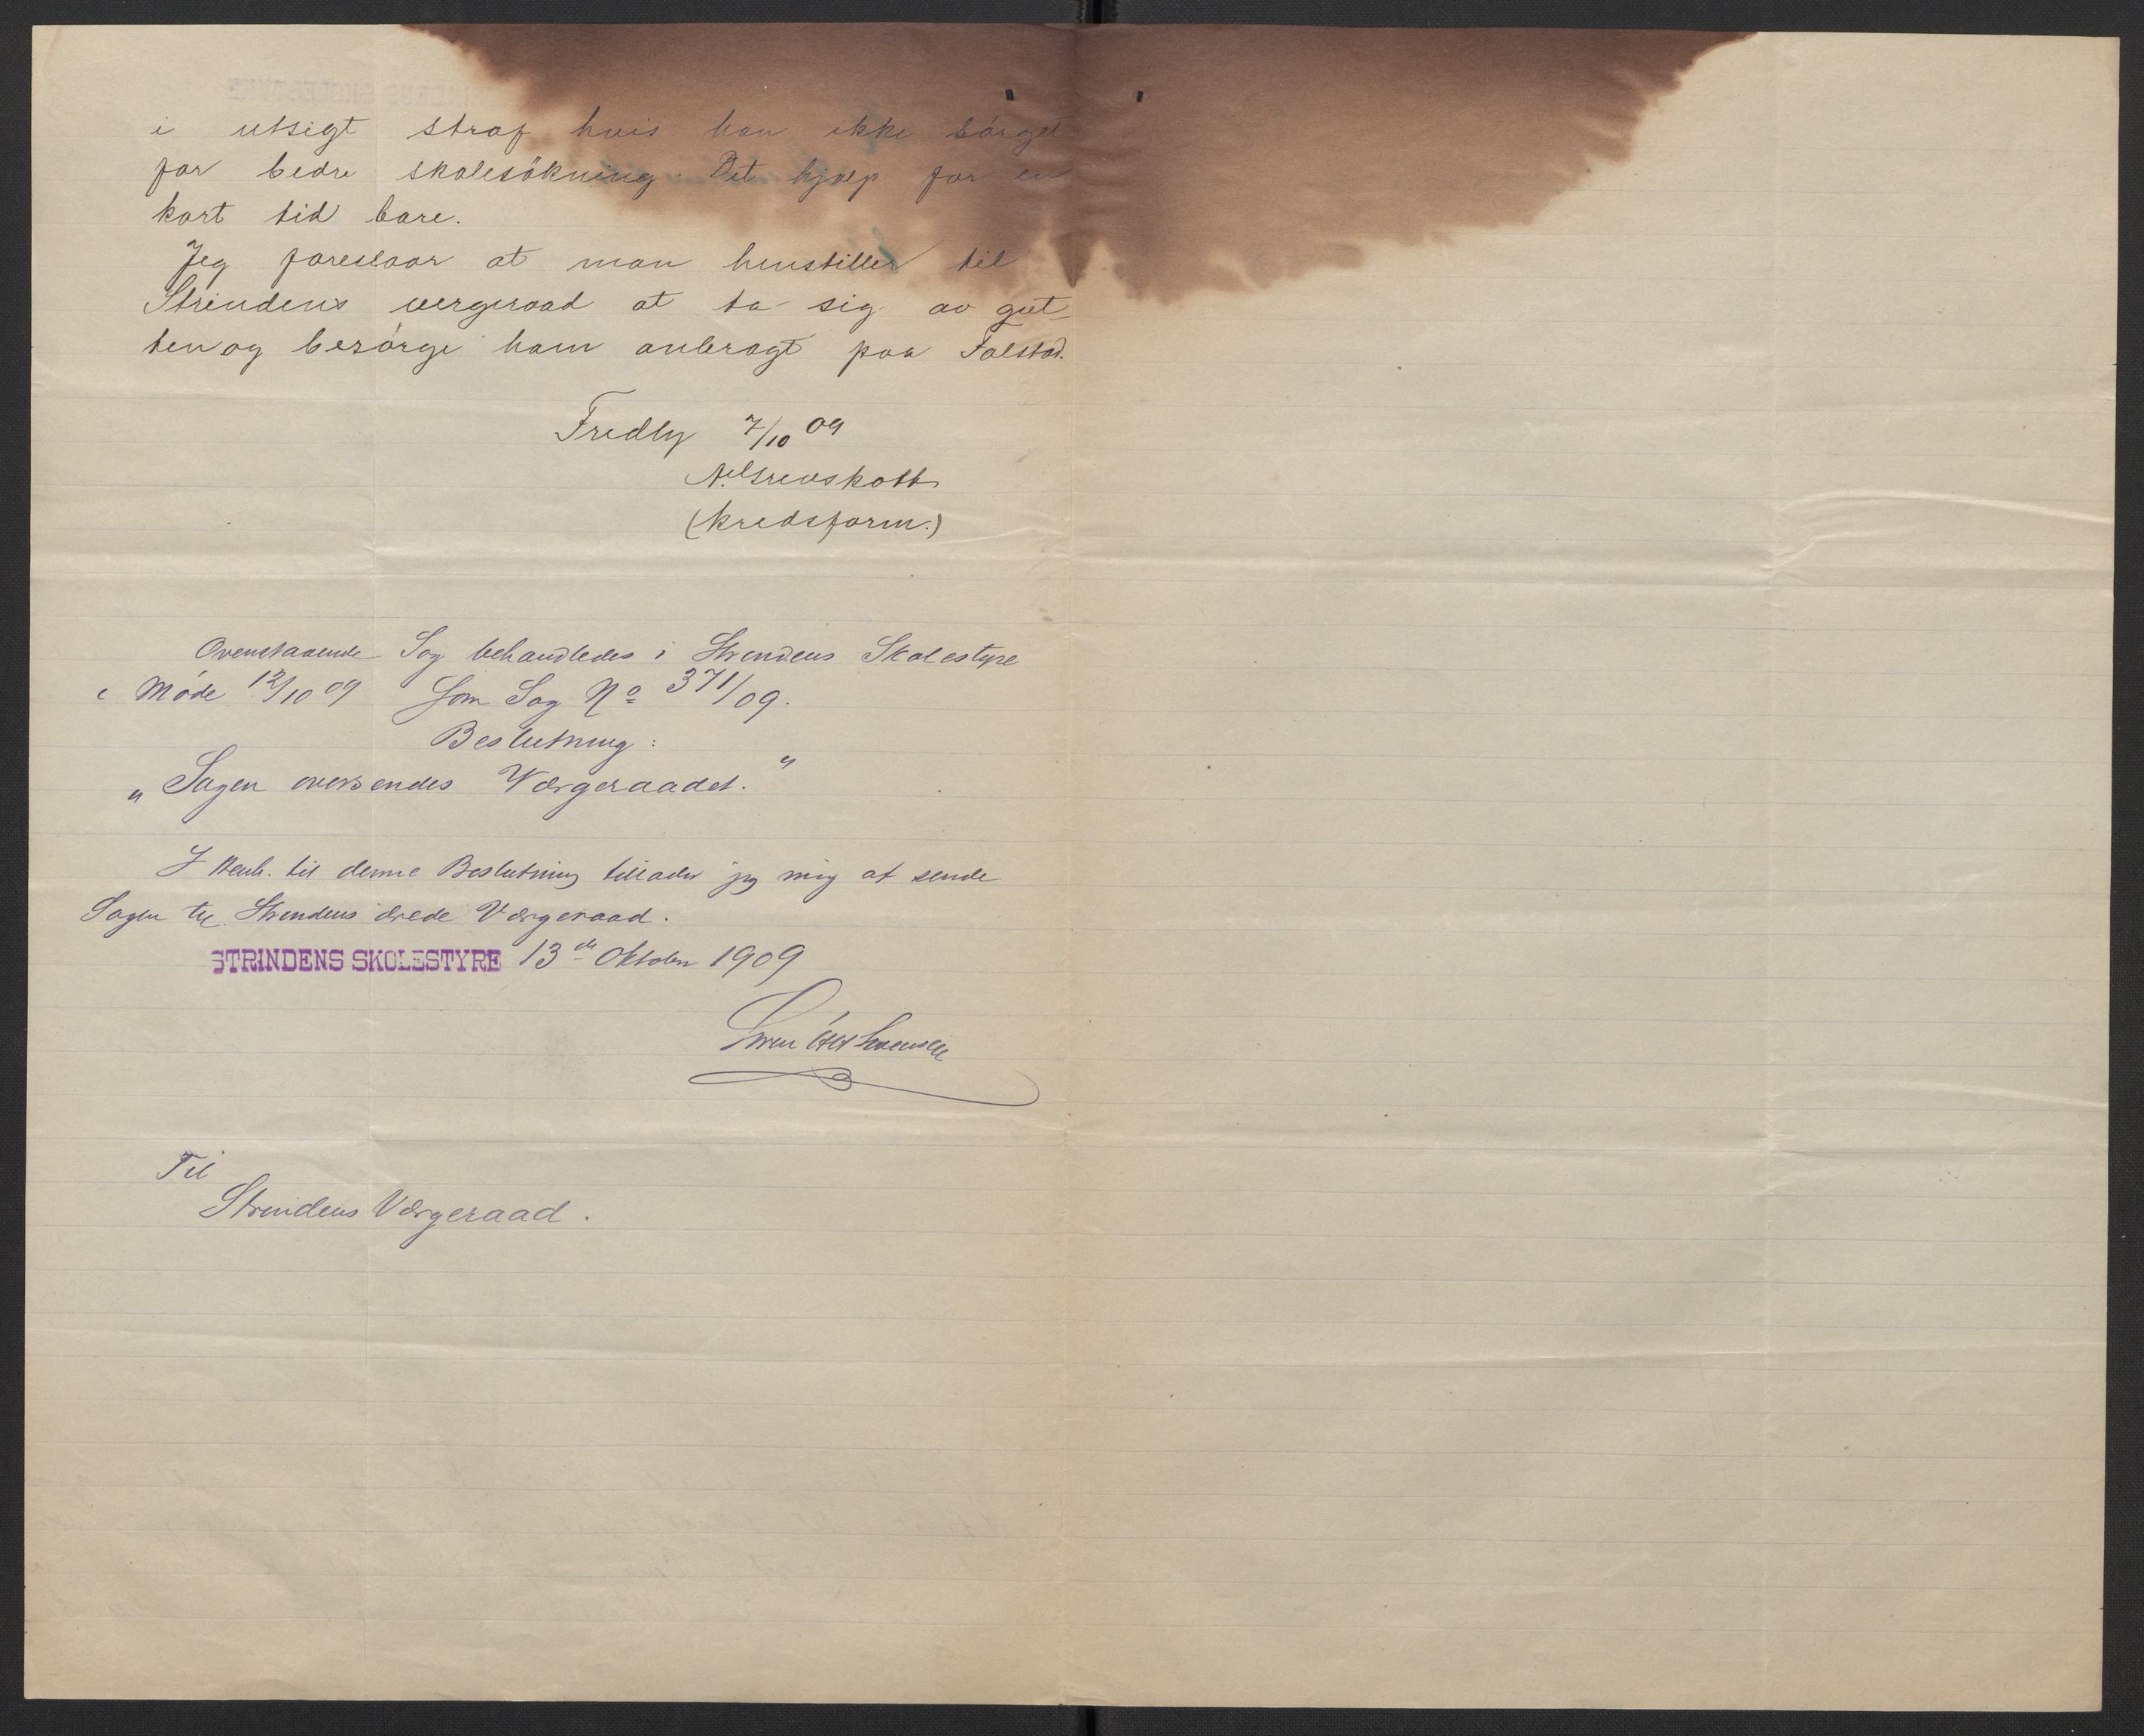 i utsigt straf hvis han ikke sörget
for bedre skolesökning. Det hjalp for en
kort tid bare.
Jeg foreslaar at man henstiller til
Strindens vergeraad at ta sig av gut-
ten og besörge ham anbragt paa Falstad.
Fredly 7/10 09
(kredsform.)
Ovenstaaende Sag behandledes i Strindens Skolestyre
i Møde 12/10 09 som Sag No 371/09.
Beslutning:
„Sagen oversendes Værgeraadet."
I Henh. til denne Beslutning tillader jeg mig at sende
Sagen til Strindens ærede Værgeraad.
STRINDENS SKOLESTYRE 13de Oktober 1909
Til
Strindens Værgeraad.